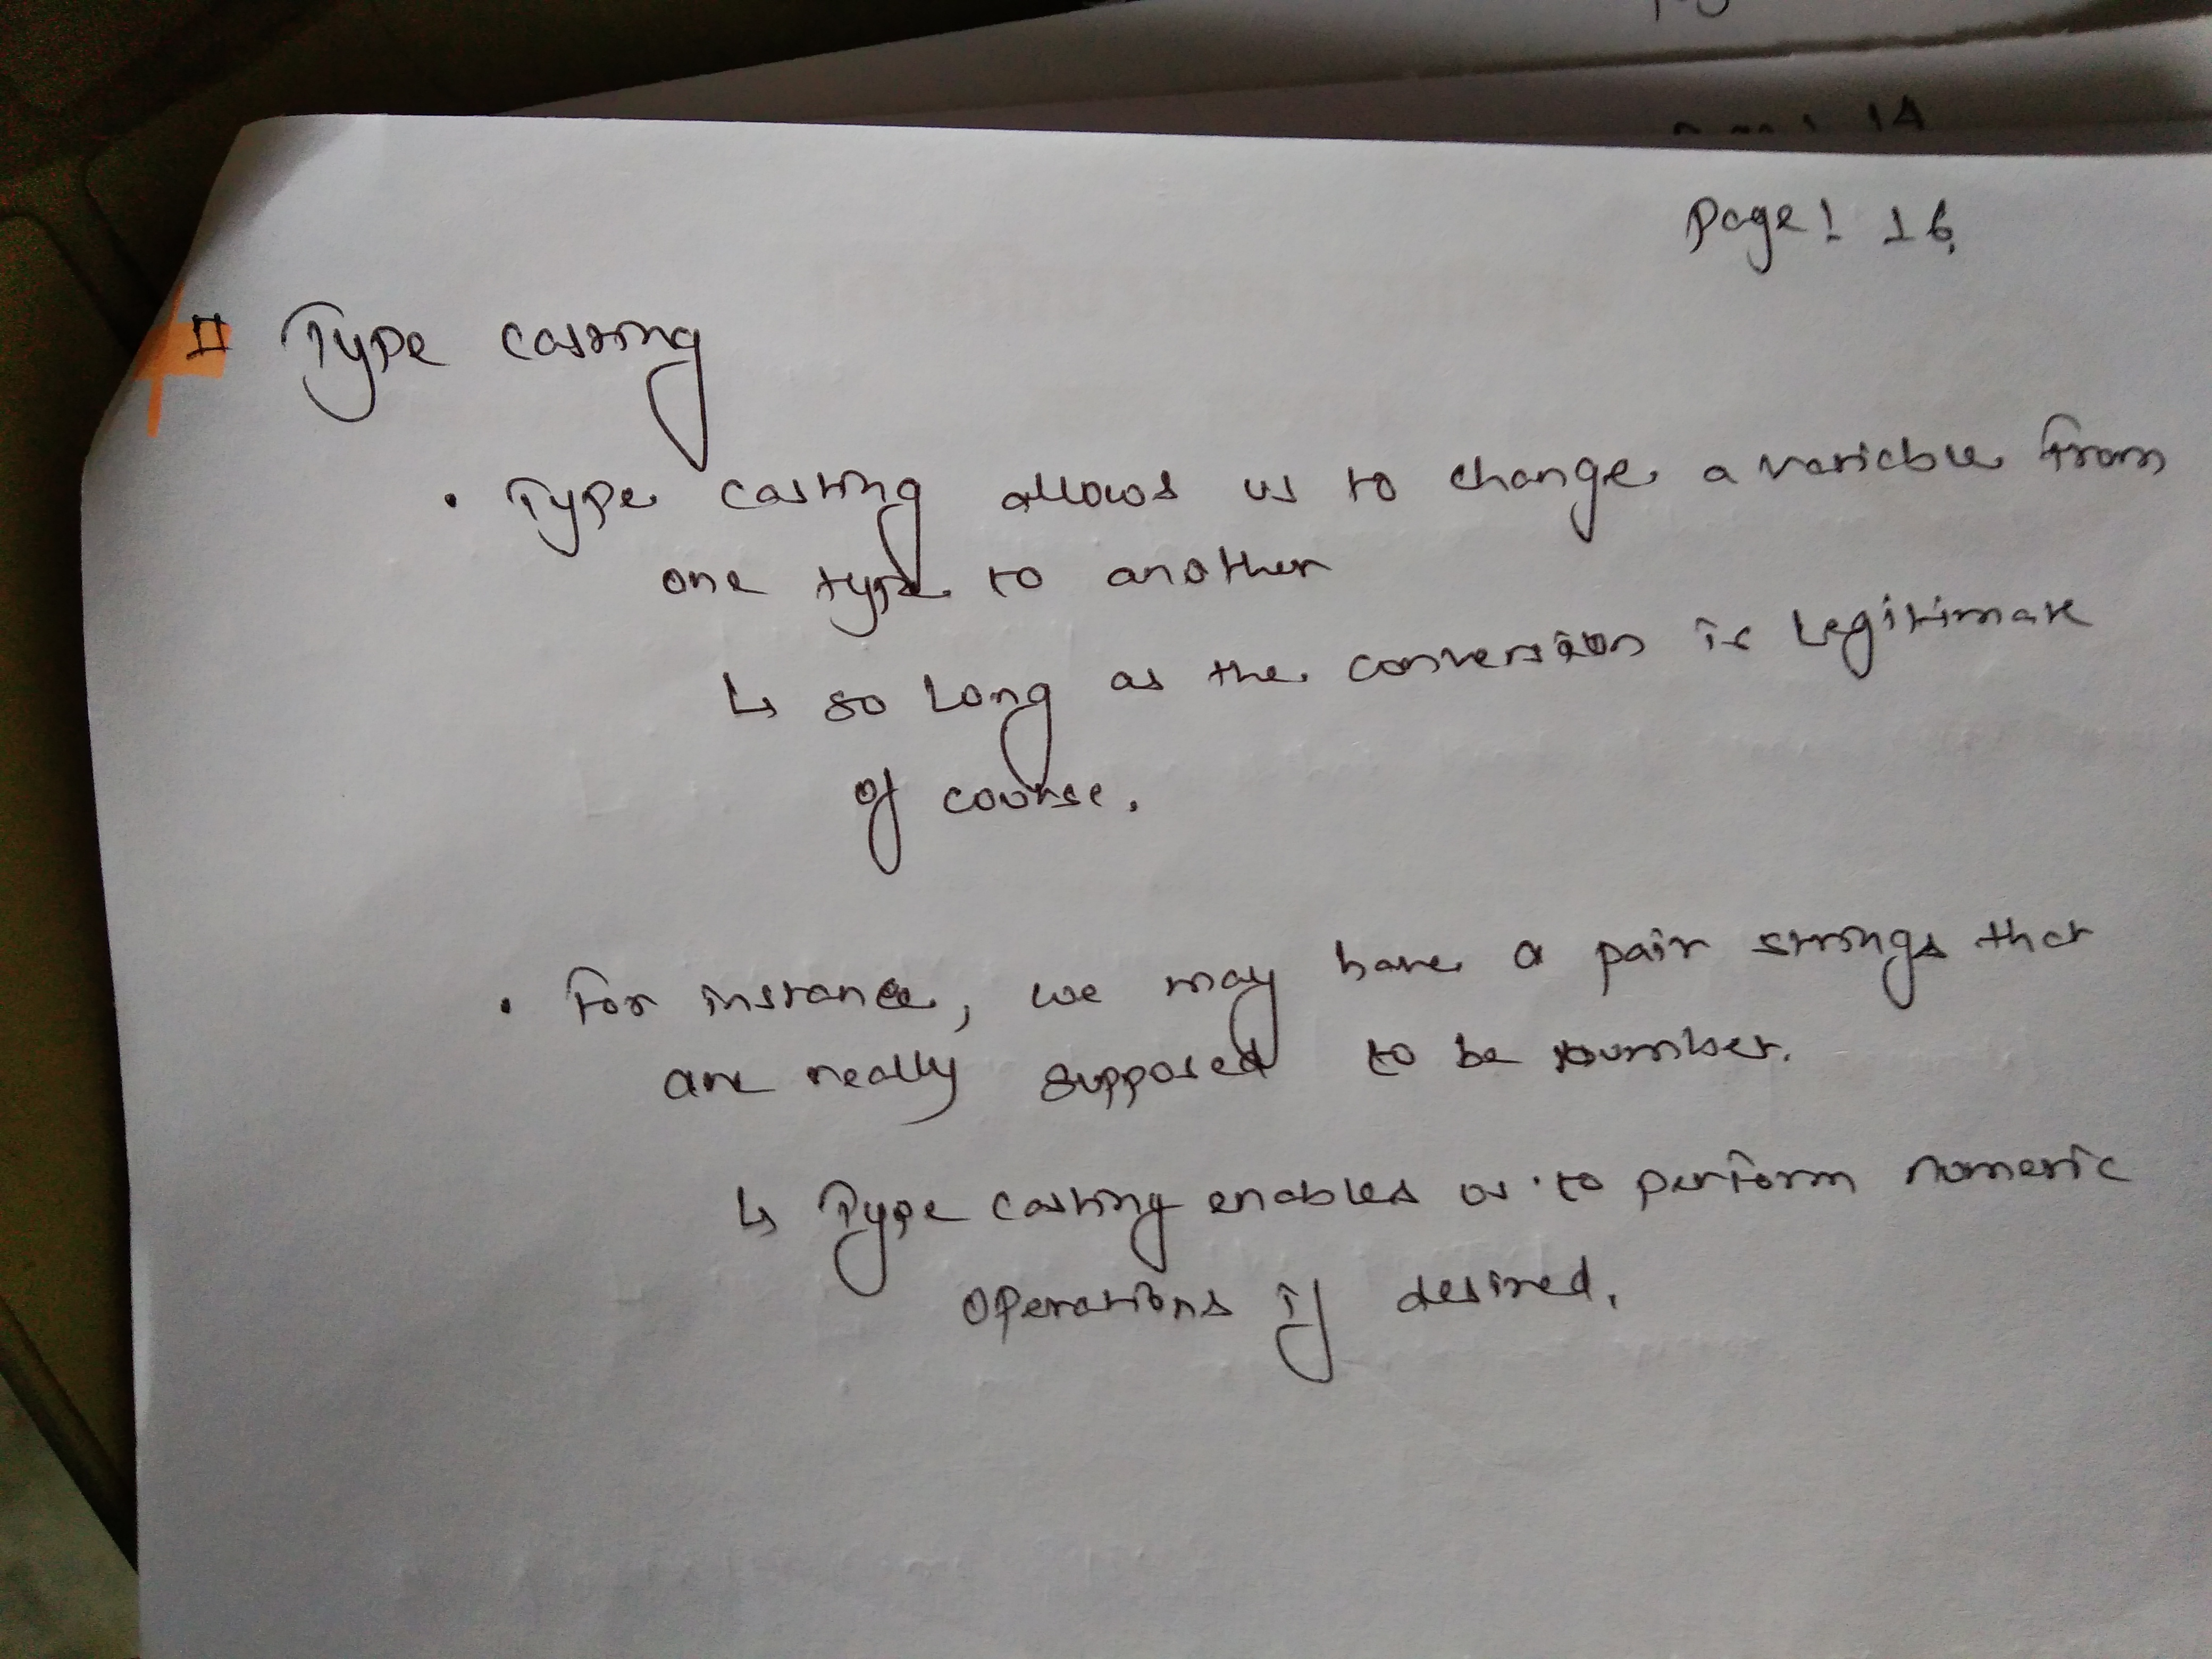 14
Page: 16
Type casting
• Type casting allows us to change a variable from
one type to another
↳ so long as the conversion is legitimate
of course.
• For instance, we may have a pair strings that
are really supposed to be number.
↳ Type casting enables us to perform numeric
operations if desired.